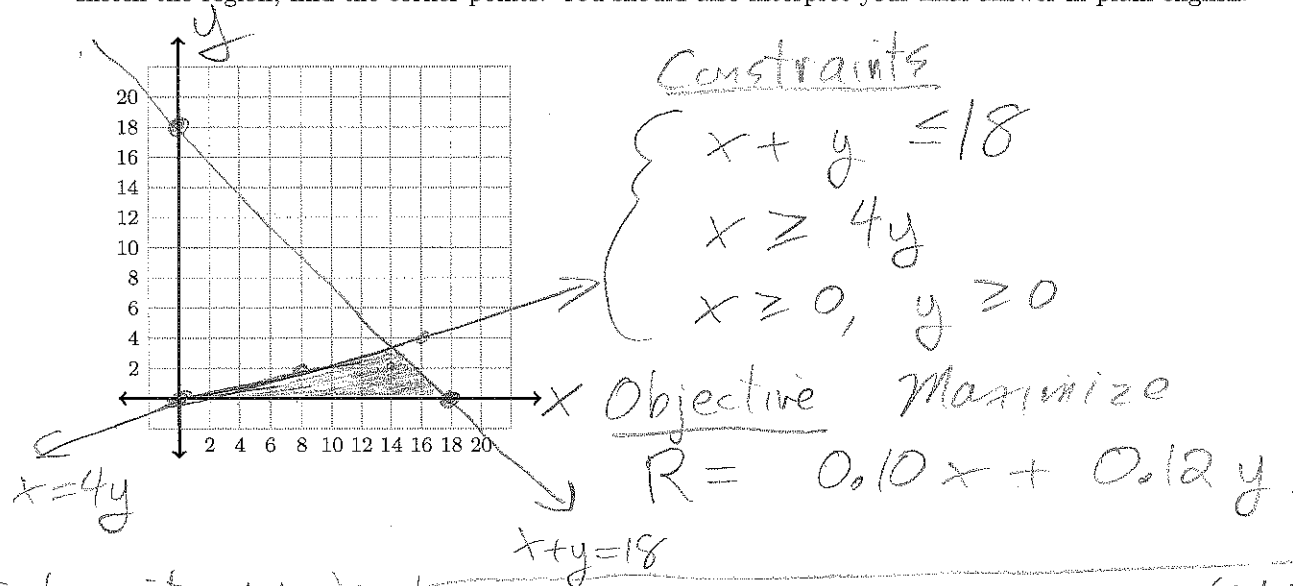 y
20
18
16
14
12
10
8
6
4
2
2 4 6 8 10 12 14 16 18 20
x
x=4y
x+y=18
Constraints
x + y ≤ 18
x ≥ 4y
x ≥ 0, y ≥ 0
Objective Maximize
R = 0.10x + 0.12y